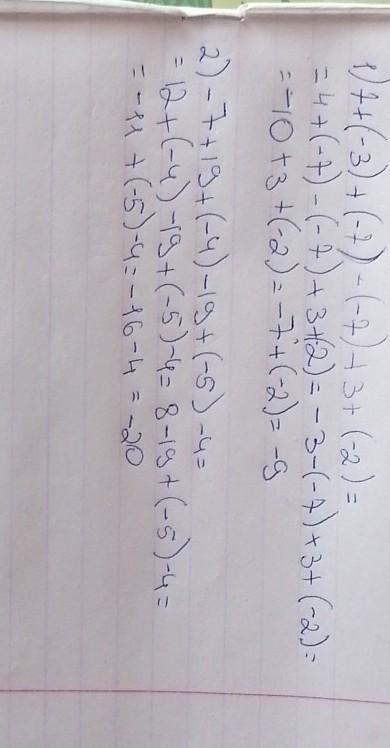 1) 7+(-3)+(-7)-(-7)+3+(-2)=
=4+(-7)-(-7)+3+(2)=-3-(-7)+3+(-2)=
=-10+3+(-2)=-7+(-2)=-9
2) -7+19+(-4)-19+(-5)-4=
=12+(-4)-19+(-5)-4=8-19+(-5)-4=
=-11+(-5)-4=-16-4=-20